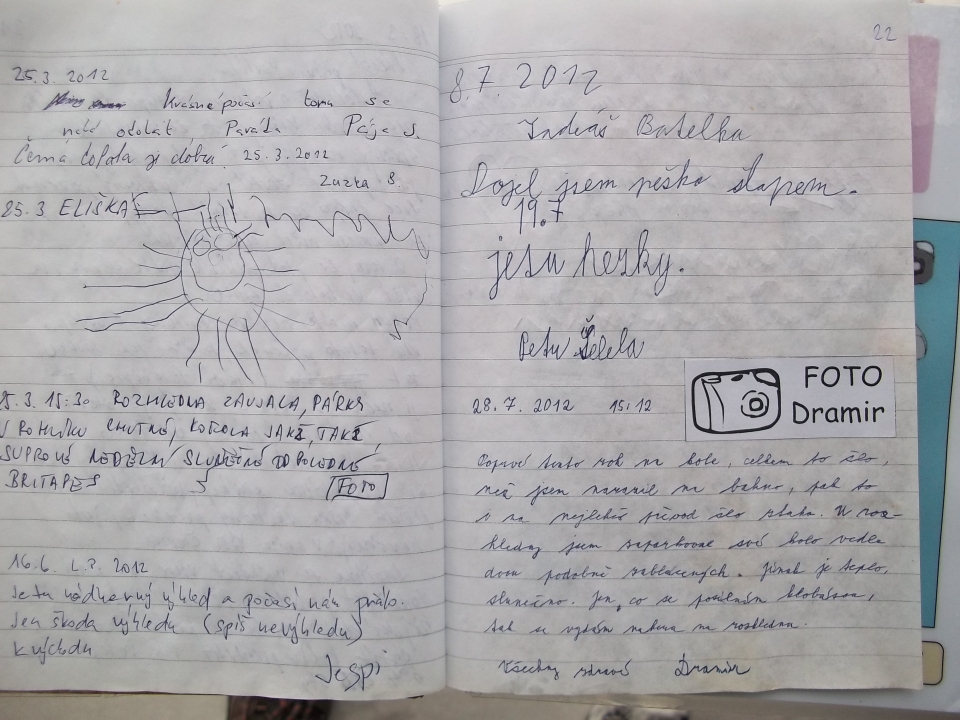 25.3. 2012
Krásné počasí tomu se
nedá odolat, Paráda Pája S.
Černá totola je dobrá! 25.3.2012
Zuzka B.
25.3 ELIŠKA
25.3. 15:30 ROZHLEDNA ZAUJALA, PÁRKY
V ROHLÍKU CHUTNÉ, KOFOLA JAKŽ TAKŽ,
SUPROVÉ NEDĚLNÍ SLUNEČNÉ ODPOLEDNE
BRITAPES
FOTO
16.6. L.P. 2012
Je tu nádherný výhled a počasí nám přálo.
Jen škoda výhledu (spíš nevýhledu)
k východu
Jespi
22
8.7. 2012
Batelka
Dojel jsem pěško stopem.
19.7
je tu hezky.
Petr
28.7. 2012 15:12
FOTO
Dramir
Poprvé tento rok na kole, celkem to šlo,
než jsem narazil na bahno, pak to
i na nejlehčí převod šlo ztuha. U roz-
hledny jsem zaparkoval své kolo vedle
dvou podobně zablácených. Jinak je teplo,
slunečno. Jen, co se posilním klobásou,
tak se vydám nahoru na rozhlednu.
Všechny zdraví Dramir